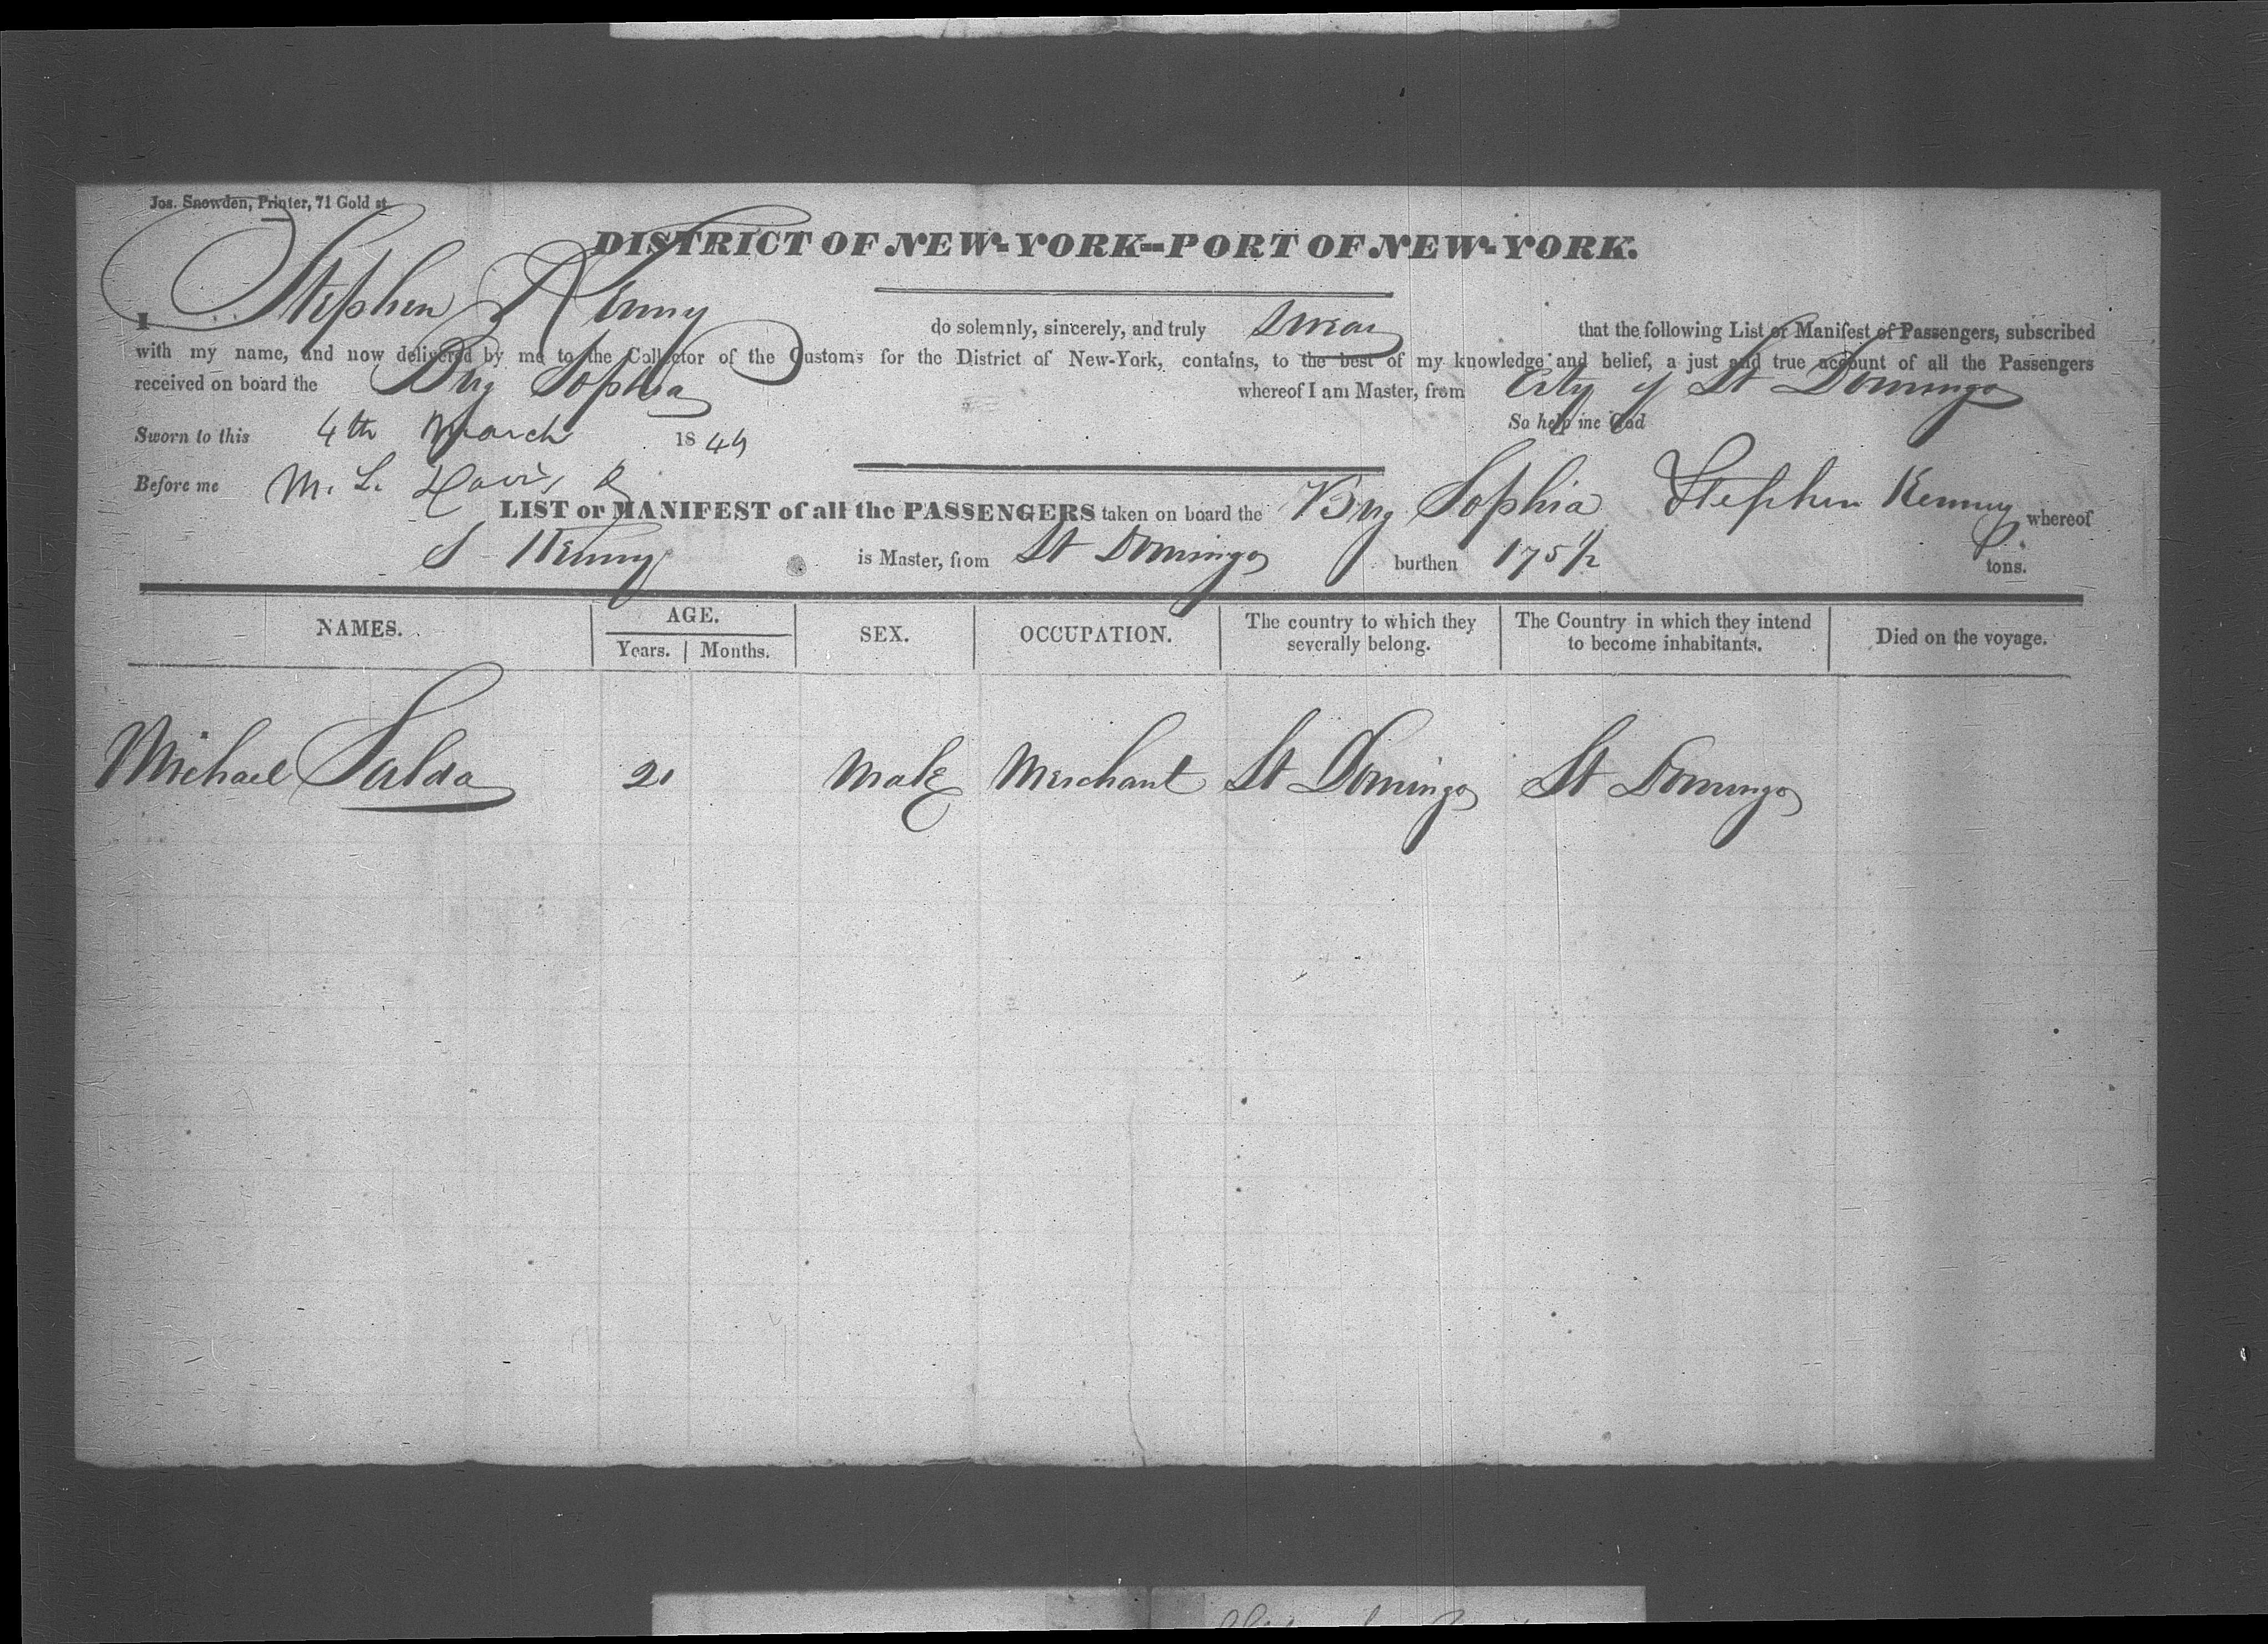 Jos. Snowden, Printer, 71 Gold st.
DISTRICT OF NEW-YORK--PORT OF NEW-YORK.
I Stephen Kenny do solemnly, sincerely, and truly swear that the following List or Manifest of Passengers, subscribed
with my name, and now delivered by me to the Collector of the Customs for the District of New-York, contains, to the best of my knowledge and belief, a just and true account of all the Passengers
received on board the Brig Sophia whereof I am Master, from City of St Domingo
So help me God
Sworn to this 4th March 1849
Before me M. L. Davis
LIST or MANIFEST of all the PASSENGERS taken on board the Brig Sophia Stephen Kenney whereof
S Kenny is Master, from St Domingo burthen 175 1/2 tons.
NAMES. AGE. Years. Months. SEX. OCCUPATION. The country to which they severally belong. The Country in which they intend to become inhabitants. Died on the voyage.
Michael Salda 21 Male Merchant St Domingo St Domingo